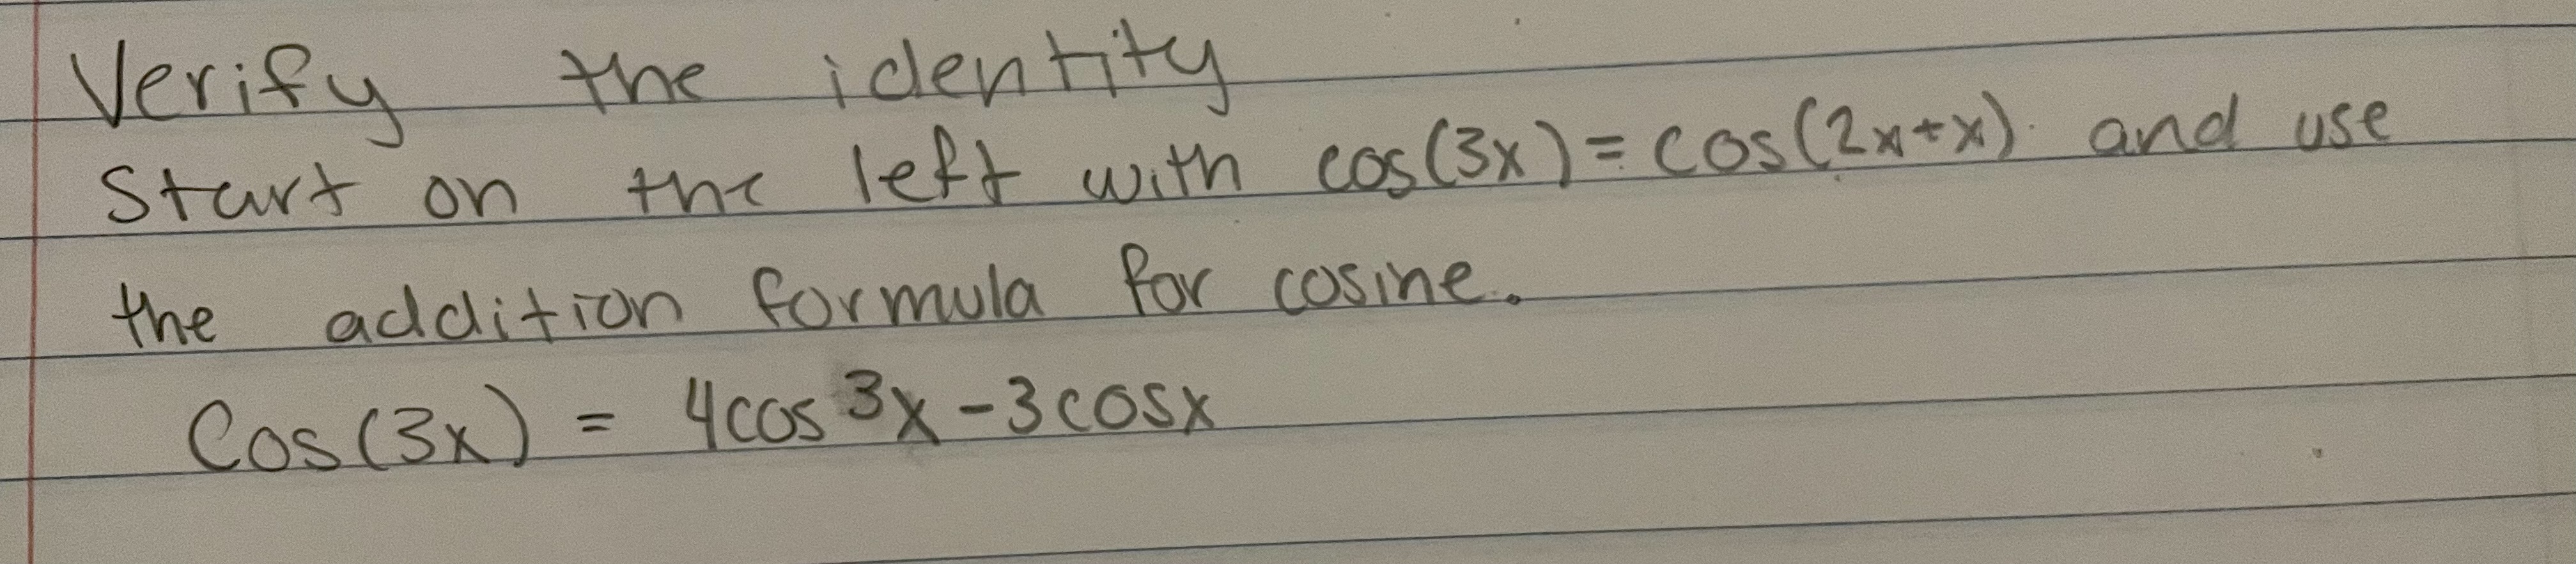 Verify the identity
Start on the left with cos(3x) = cos(2x+x). and use
the addition formula for cosine.
Cos(3x) = 4cos³x - 3cosx